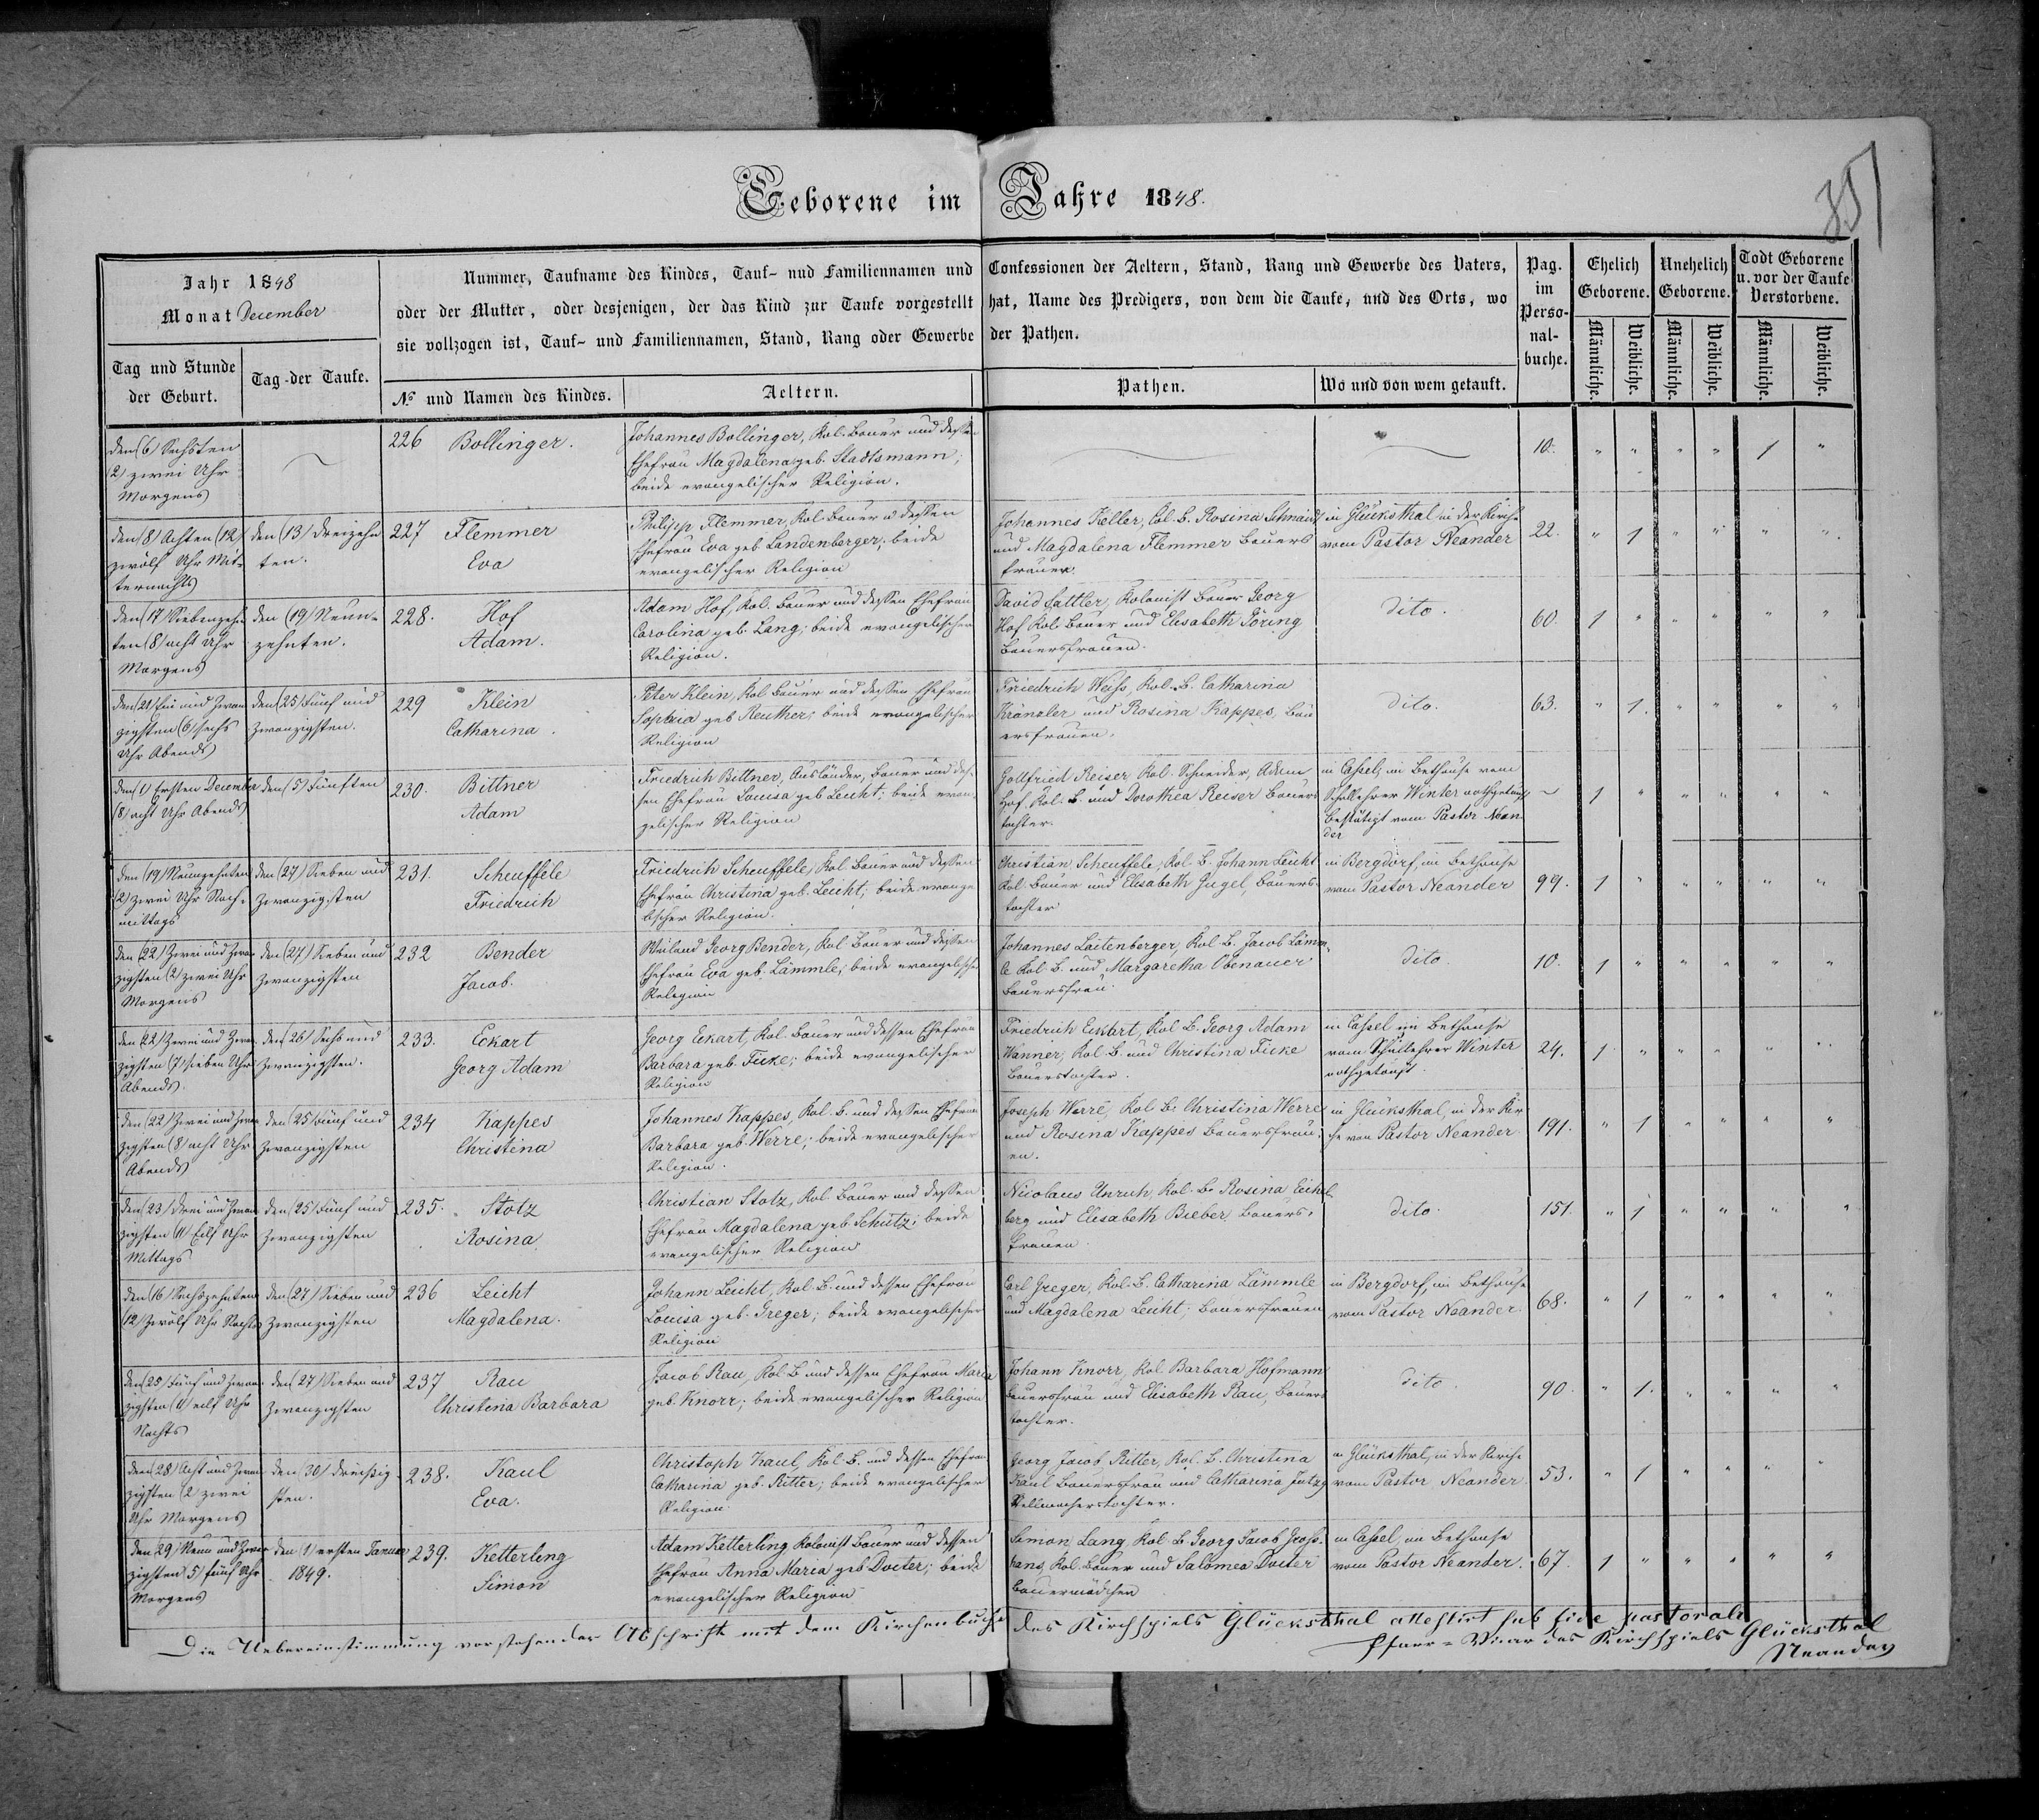 351
Geborene im Jahre 1848.
Jahr 1848
Monat December
Nummer, Taufname des Kindes, Tauf- und Familiennamen und Confessionen der Aeltern, Stand, Rang und Gewerbe des Vaters,
oder der Mutter, oder desjenigen, der das Kind zur Taufe vorgestellt hat, Name des Predigers, von dem die Taufe, und des Orts, wo
sie vollzogen ist, Tauf- und Familiennamen, Stand, Rang oder Gewerbe der Pathen.
Pag. im Perso-nal-buche.
Ehelich Geborene.
Unehelich Geborene.
Todt Geborene u. vor der Taufe Verstorbene.
Tag und Stunde der Geburt.
Tag der Taufe.
No und Namen des Kindes.
Aeltern.
Pathen.
Wo und von wem getauft.
Männliche. Weibliche. Männliche. Weibliche. Männliche. Weibliche.
den (6) Sechsten
(2) zwei Uhr
Morgens
226 Bollinger.
Johannes Bollinger, Kol. Bauer und dessen
Ehefrau Magdalena geb. Stadtsmann;
beide evangelischer Religion.
10. " " " " 1 "
den (8) Achten (12)
zwölf Uhr Mit-
ternachts
den (13) Dreizehn
ten.
227 Flemmer
Eva
Philipp Flemmer, Kol. Bauer u dessen
Ehefrau Eva geb. Landenberger; beide
evangelischer Religion
Johannes Keller, Col. B. Rosina Schnaidt
und Magdalena Flemmer Bauers
frauen.
in Glücksthal in der Kirche
vom Pastor Neander
22. " 1 " " " "
den (17) Siebenzehn
ten (8) acht Uhr
Morgens
den (19) Neun-
zehnten.
228. Hof
Adam.
Adam Hof, Kol. Bauer und dessen Ehefrau
Carolina geb. Lang; beide evangelischer
Religion.
David Sattler, Kolonist Bauer Georg
Hof Kol. Bauer und Elisabeth Göring
Bauersfrauen.
dito.
60. 1 " " " " "
den (21) Ein und Zwan
zigsten (6) sechs
Uhr Abends
den (25) Fünf und
zwanzigsten.
229 Klein
Catharina.
Peter Klein, Kol. Bauer und dessen Ehefrau
Sophia geb Reuther; beide evangelischer
Religion
Friedrich Weiss, Kol. B. Catharina
Kränzler und Rosina Kappes, Bau
ersfrauen.
dito.
63. " 1. " " " "
den (1) Ersten December
(8) acht Uhr Abends
den (5) Fünften
230. Bittner
Adam
Friedrich Bittner, Ausländer, Bauer und des-
sen Ehefrau Louisa geb. Leicht; beide evan-
gelischer Religion
Gottfried Reiser Kol. Schneider, Adam
Hof, Kol. B. und Dorothea Reiser Bauers
tochter.
in Cassel, im Bethause vom
Schullehrer Winter nothgetauft
bestätigt vom Pastor Nean
der
1 " " " " "
den (19) Neunzehnten
(2) zwei Uhr Nach-
mittags
den (27) Sieben und
Zwanzigsten
231. Scheuffele
Friedrich
Friedrich Scheuffele, Kol. Bauer und dessen
Ehefrau Christina geb. Leicht; beide evange
lischer Religion.
Christian Scheuffele, Kol. B. Johann Leicht
Kol. Bauer und Elisabeth Gugel, Bauers
tochter
in Bergdorf, im Bethause
vom Pastor Neander
99. 1 " " " " "
den (22) Zwei und Zwan
zigsten (2) zwei Uhr
Morgens
den (27) Sieben und
Zwanzigsten
232 Bender
Jacob.
Weiland Georg Bender, Kol. Bauer und dessen
Ehefrau Eva geb. Lämmle; beide evangelischer
Religion
Johannes Laitenberger, Kol. B. Jacob Lämm-
le Kol. B. und Margaretha Obenauer
Bauersfrau.
dito.
10. 1 " " " " "
den (22) Zwei und Zwan
zigsten (7) sieben Uhr
Abends.
den (26) Sechs und
Zwanzigsten.
233. Eckart
Georg Adam
Georg Eckart, Kol. Bauer und dessen Ehefrau
Barbara geb. Ficke; beide evangelischer
Religion
Friedrich Eckart, Kol B. Georg Adam
Wanner, Kol. B. und Christina Ficke
Bauerstochter.
in Cassel im Bethause
vom Schullehrer Winter
nothgetauft.
24. 1 " " " " "
den (22) Zwei und Zwan
zigsten (8) acht Uhr
Abends
den (25) Fünf und
Zwanzigsten
234 Kappes
Christina
Johannes Kappes, Kol. B. und dessen Ehefrau
Barbara geb. Werre; beide evangelischer
Religion.
Joseph Werre, Kol B. Christina Werre
und Rosina Kappes Bauersfrau-
en.
in Glücksthal, in der Kir
che von Pastor Neander.
191. " 1 " " " "
den (23) Drei und Zwan
zigsten (11) Eilf Uhr
Mittags
den (25) Fünf und
Zwanzigsten
235. Stotz
Rosina
Christian Stotz, Kol. Bauer und dessen
Ehefrau Magdalena geb. Schütz; beide
evangelischer Religion
Nicolaus Unruh, Kol. B. Rosina Eichel-
berg und Elisabeth Bieber, Bauers-
frauen.
dito.
151. " 1 " " " "
den (16) Sechszehnten
(12) Zwölf Uhr Nachts
den (27) Sieben und
Zwanzigsten
236 Leicht
Magdalena.
Johann Leicht, Kol. B. und dessen Ehefrau
Louisa geb. Greger; beide evangelischer
Religion
Carl Greger, Kol. B. Catharina Lämmle
und Magdalena Leicht; Bauersfrauen
in Bergdorf, im Bethause
vom Pastor Neander.
68. " 1 " " " "
den (25) Fünf und Zwan-
zigsten (11) eilf Uhr
Nachts
den (27) Sieben und
Zwanzigsten
237 Rau
Christina Barbara
Jacob Rau, Kol. B und dessen Ehefrau Maria
geb. Knorr; beide evangelischer Religion
Johann Knorr, Kol. Barbara Hofmann
Bauersfrau und Elisabeth Rau, Bauers
tochter.
dito
90. " 1. " " " "
den (28) Acht und Zwan
zigsten (2 zwei
Uhr Morgens
den (30) dreissig-
sten.
238. Kaul
Eva.
Christoph Kaul, Kol. B. und dessen Ehefrau
Catharina geb. Ritter; beide evangelischer
Religion.
Georg Jacob Ritter, Kol. B. Christina
Kaul Bauersfrau und Catharina
Stellmacherstochter.
in Glücksthal, in der Kirche
vom Pastor Neander
53. " 1 " " " "
den (29) Neun und Zwan
zigsten 5) fünf Uhr
Morgens
den (1) ersten Januar
1849.
239. Ketterling
Simon
Adam Ketterling Kolonist Bauer und dessen
Ehefrau Anna Maria geb Docter; beide
evangelischer Religion
Simon Lang, Kol B. Georg Jacob Gross-
hans, Kol. Bauer und Salomea Docter
Bauermädchen
in Cassel, im Bethause
vom Pastor Neander.
67. 1 " " " " "
Die Uebereinstimmung vorstehender Abschrift mit dem Kirchenbuche des Kirchspiels Glücksthal attestirt sub fide pastorali
Pfarr-Vicar des Kirchspiels Glücksthal
Neander